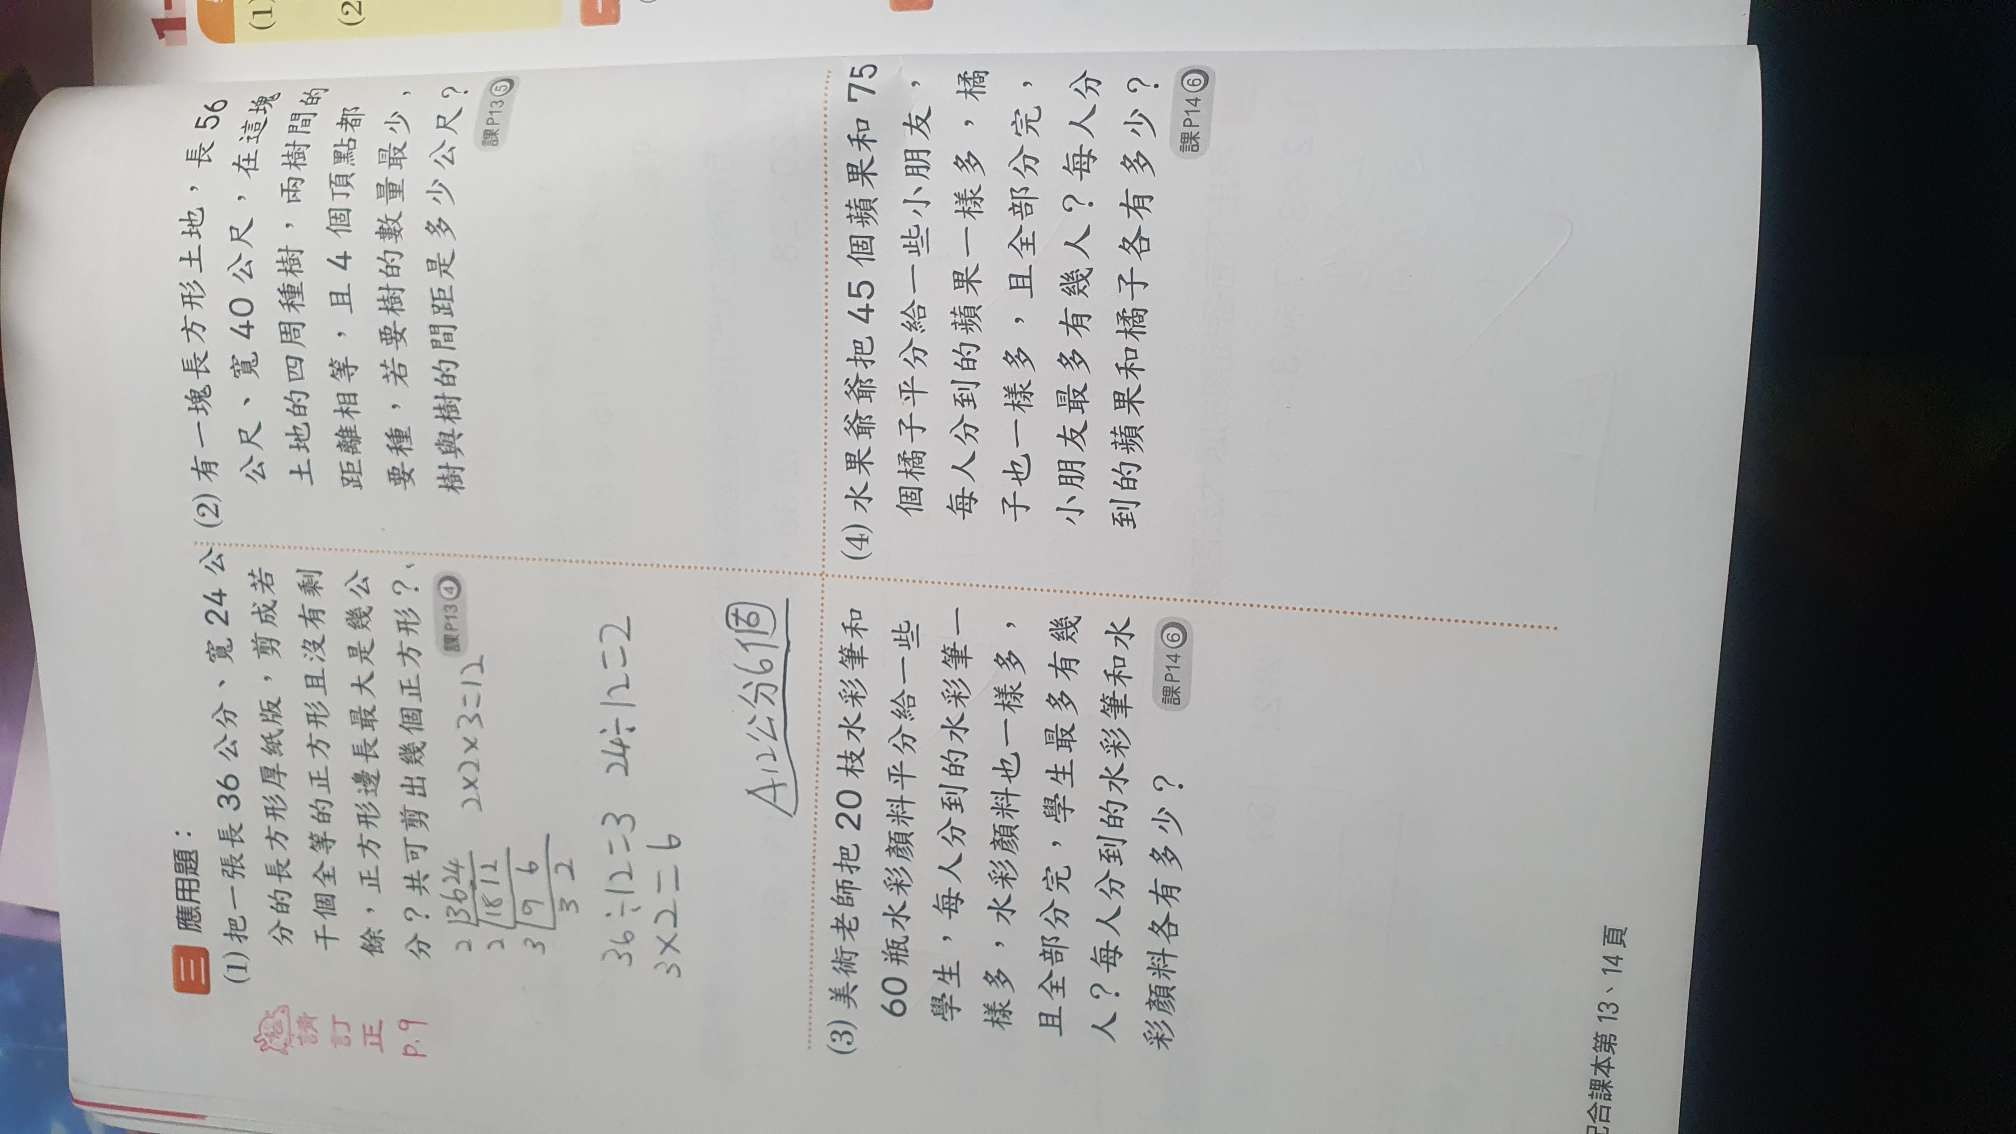 請
訂
正
P.9
三 應用題：
(1) 把一張長 36 公分、寬 24 公
分的長方形厚紙版，剪成若
干個全等的正方形且沒有剩
餘，正方形邊長最大是幾公
分？共可剪出幾個正方形？
課P13④
2×2×3=12
2 36 24
2 18 12
3 9 6
3 2
36÷12=3 24÷12=2
3×2=6
A:12公分6個
(2) 有一塊長方形土地，長 56
公尺、寬 40 公尺，在這塊
土地的四周種樹，兩樹間的
距離相等，且 4 個頂點都
要種，若要樹的數量最少，
樹與樹的間距是多少公尺？
課P13⑤
(3) 美術老師把 20 枝水彩筆和
60 瓶水彩顏料平分給一些
學生，每人分到的水彩筆一
樣多，水彩顏料也一樣多，
且全部分完，學生最多有幾
人？每人分到的水彩筆和水
彩顏料各有多少？
課P14⑥
(4) 水果爺爺把 45 個蘋果和 75
個橘子平分給一些小朋友，
每人分到的蘋果一樣多，橘
子也一樣多，且全部分完，
小朋友最多有幾人？每人分
到的蘋果和橘子各有多少？
課P14⑥
配合課本第 13、14 頁
1-
(1)
(2